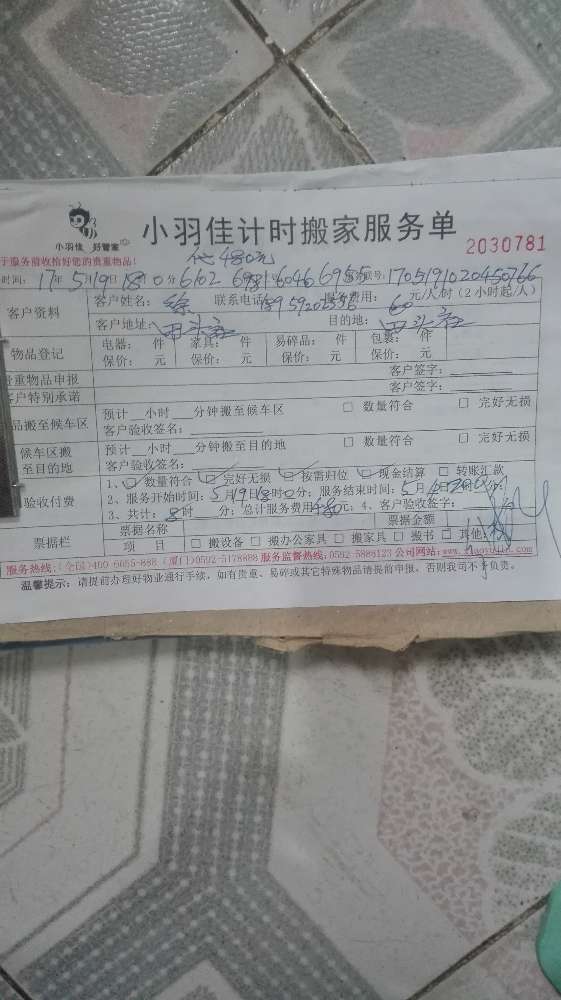 小羽佳 好管家
小羽佳计时搬家服务单
2030781
于服务前收拾好您的贵重物品!
代480元
时间: 17年5月19日18时0分 6102 6981 6046 6985 号: 1705191020450766
客户资料
客户姓名: 徐 联系电话: 服务费用: 60元/人/时(2小时起/人)
客户地址: 田头 目的地: 田头
物品登记
电器: 件 家具: 件 易碎品: 件 包裹: 件
保价: 元 保价: 元 保价: 元 保价: 元
贵重物品申报 客户签字:
客户特别承诺 客户签字:
品搬至候车区
预计__小时__分钟搬至候车区 □ 数量符合 □ 完好无损
客户验收签名:
候车区搬至目的地
预计__小时__分钟搬至目的地 □ 数量符合 □ 完好无损
客户验收签名:
验收付费
1、□ 数量符合 □ 完好无损 □ 按需归位 □ 现金结算 □ 转账汇款
2、服务开始时间: 5月19日18时0分; 服务结束时间: 5月
3、共计: 8时 分; 总计服务费用480元; 4、客户验收签字:
票据栏
票据名称 票据金额
项 目 □ 搬设备 □ 搬办公家具 □ 搬家具 □ 搬书 □ 其他:
服务热线: (全国)400-6055-888 (厦门)0592-5178888 服务监督热线: 0592-5886123 公司网站:
温馨提示: 请提前办理好物业通行手续, 如有贵重、易碎或其它特殊物品请提前申报, 否则我司不予负责。